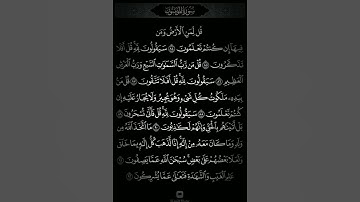 سورة المؤمنون
قُل لِّمَنِ ٱلْأَرْضُ وَمَن
فِيهَآ إِن كُنتُمْ تَعْلَمُونَ ۝ سَيَقُولُونَ لِلَّهِ قُلْ أَفَلَا
تَذَكَّرُونَ ۝ قُلْ مَن رَّبُّ ٱلسَّمَٰوَٰتِ ٱلسَّبْعِ وَرَبُّ ٱلْعَرْشِ
ٱلْعَظِيمِ ۝ سَيَقُولُونَ لِلَّهِ قُلْ أَفَلَا تَتَّقُونَ ۝ قُلْ مَنۢ
بِيَدِهِۦ مَلَكُوتُ كُلِّ شَىْءٍ وَهُوَ يُجِيرُ وَلَا يُجَارُ عَلَيْهِ إِن
كُنتُمْ تَعْلَمُونَ ۝ سَيَقُولُونَ لِلَّهِ قُلْ فَأَنَّىٰ تُسْحَرُونَ ۝
بَلْ أَتَيْنَٰهُم بِٱلْحَقِّ وَإِنَّهُمْ لَكَٰذِبُونَ ۝ مَا ٱتَّخَذَ
ٱللَّهُ مِن وَلَدٍ وَمَا كَانَ مَعَهُۥ مِنْ إِلَٰهٍ إِذًا لَّذَهَبَ كُلُّ إِلَٰهٍۭ بِمَا خَلَقَ
وَلَعَلَا بَعْضُهُمْ عَلَىٰ بَعْضٍ سُبْحَٰنَ ٱللَّهِ عَمَّا يَصِفُونَ ۝
عَٰلِمِ ٱلْغَيْبِ وَٱلشَّهَٰدَةِ فَتَعَٰلَىٰ عَمَّا يُشْرِكُونَ ۝